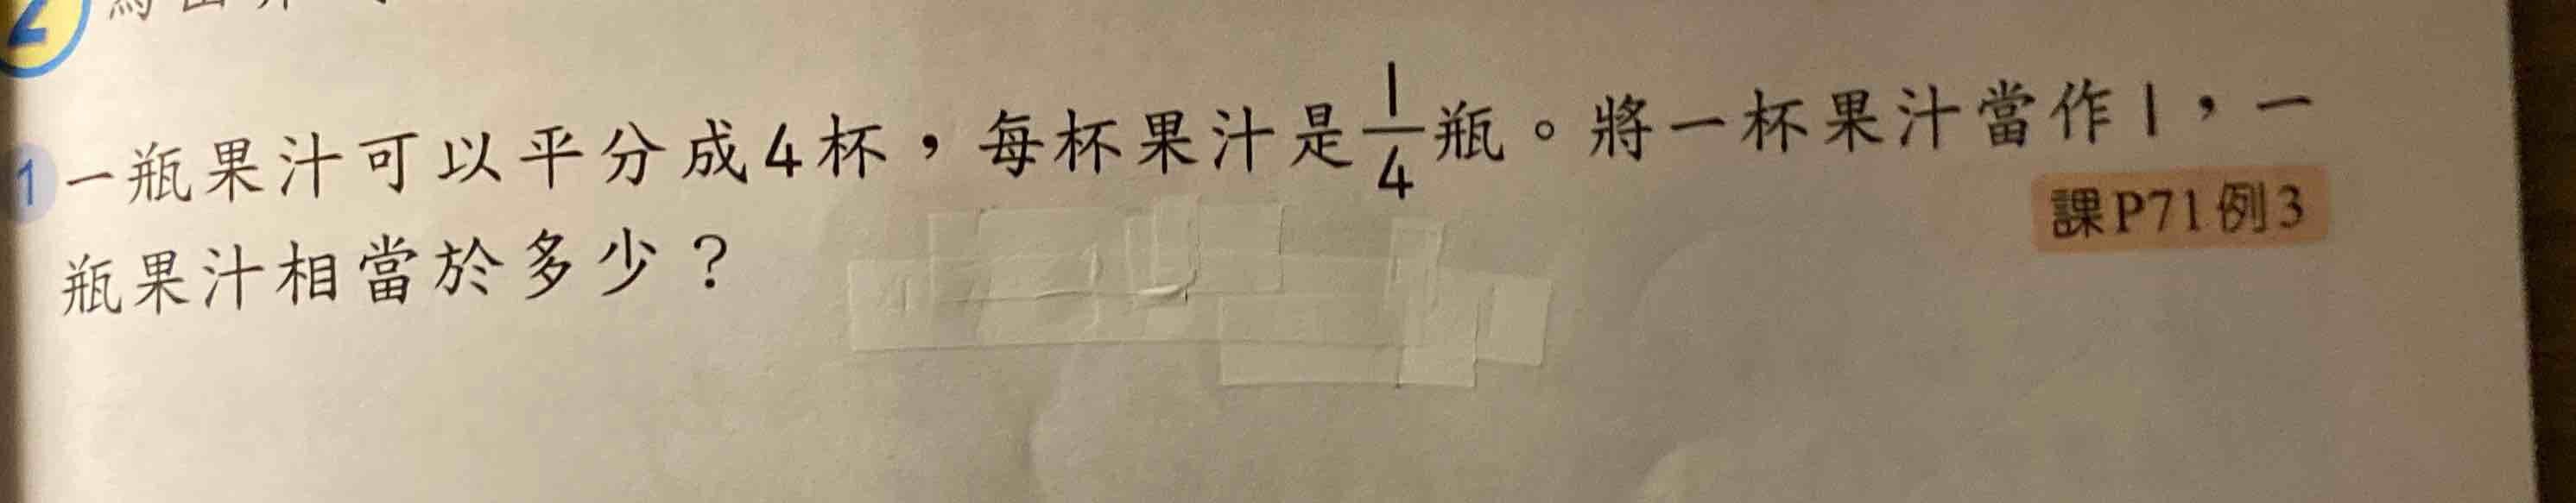 2
1 一瓶果汁可以平分成4杯，每杯果汁是1/4瓶。將一杯果汁當作1，一
課P71例3
瓶果汁相當於多少？